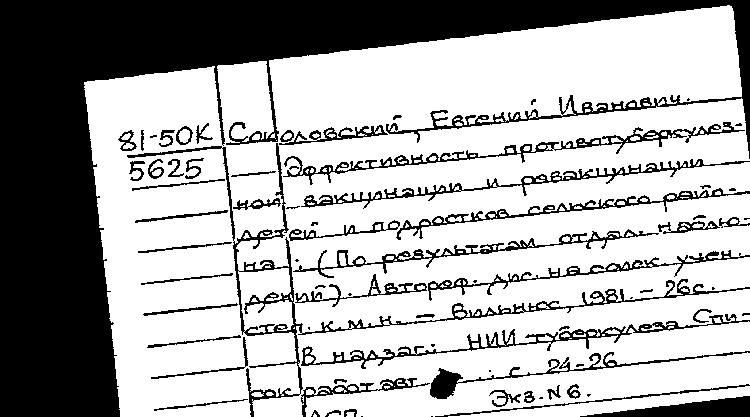 81-50К Соколовский, Евгений Иванович.
5625 Эффективность противотуберкулез-
ной вакцинации и ревакцинации
детей и подростков сельского райо-
на : (По результатам отдал. наблю-
дений). Автореф. дис. на соиск. учен.
степ. к.м.н. — Вильнюс, 1981. - 26 с.
В надзаг.: НИИ туберкулеза Спи-
сок работ авт : с. 24-26
Экз. N 6.